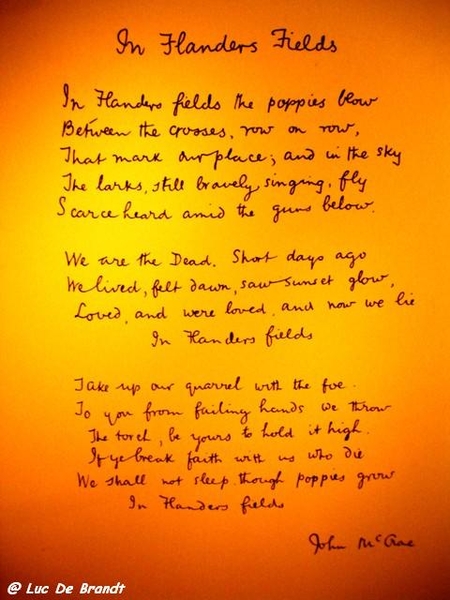 In Flanders Fields
In Flanders fields the poppies blow
Between the crosses, row on row,
That mark our place; and in the sky
The larks, still bravely singing, fly
Scarce heard amid the guns below.
We are the Dead. Short days ago
We lived, felt dawn, saw sunset glow,
Loved, and were loved, and now we lie
In Flanders fields
Take up our quarrel with the foe.
To you from failing hands we throw
The torch, be yours to hold it high.
If ye break faith with us who die
We shall not sleep though poppies grow
In Flanders fields
John McCrae
@ Luc De Brandt